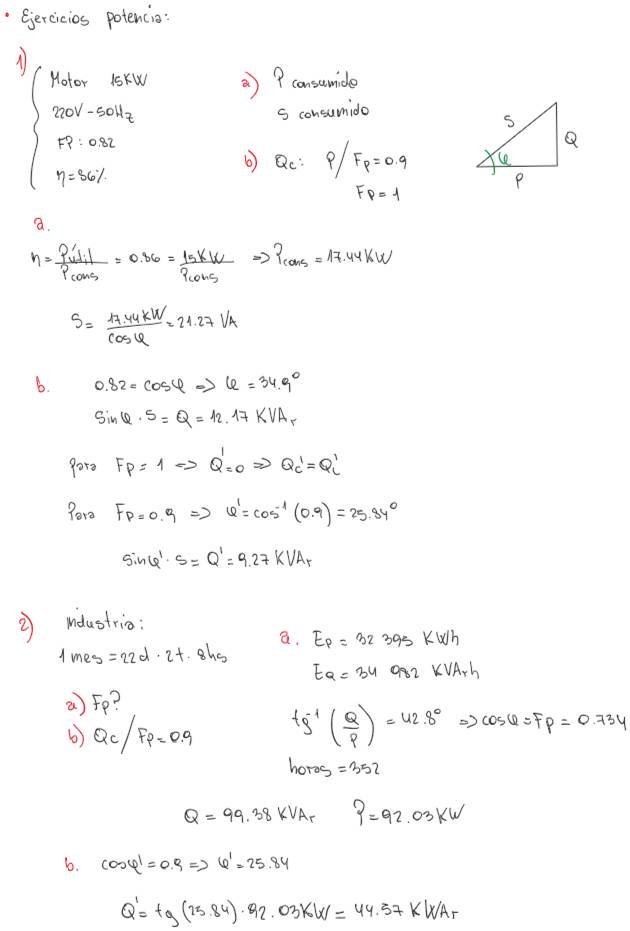 • Ejercicios potencia:
1)
Motor 15KW
220V - 50Hz
FP: 0.82
η = 86%
a) P consumido
S consumido
b) Qc: P / Fp = 0.9
Fp = 1
S
Q
φ
P
a.
η = Pútil/Pcons = 0.86 = 15KW/Pcons => Pcons = 17.44 KW
S = 17.44 KW/cos φ = 21.27 VA
b. 0.82 = cos φ => φ = 34.9°
sin φ · S = Q = 12.17 KVAr
para Fp = 1 => Q' = 0 => Qc' = QL'
Para Fp = 0.9 => φ' = cos⁻¹(0.9) = 25.84°
sin φ' · S = Q' = 9.27 KVAr
2) industria:
1 mes = 22d · 2t · 8hs
a) Fp?
b) Qc / Fp = 0.9
a. Ep = 32 395 KWh
EQ = 34 982 KVArh
tg⁻¹ (Q/P) = 42.8° => cos φ = Fp = 0.734
horas = 352
Q = 99.38 KVAr P = 92.03 KW
b. cos φ' = 0.9 => φ' = 25.84
Q' = tg (25.84) · 92.03 KW = 44.57 KWAr